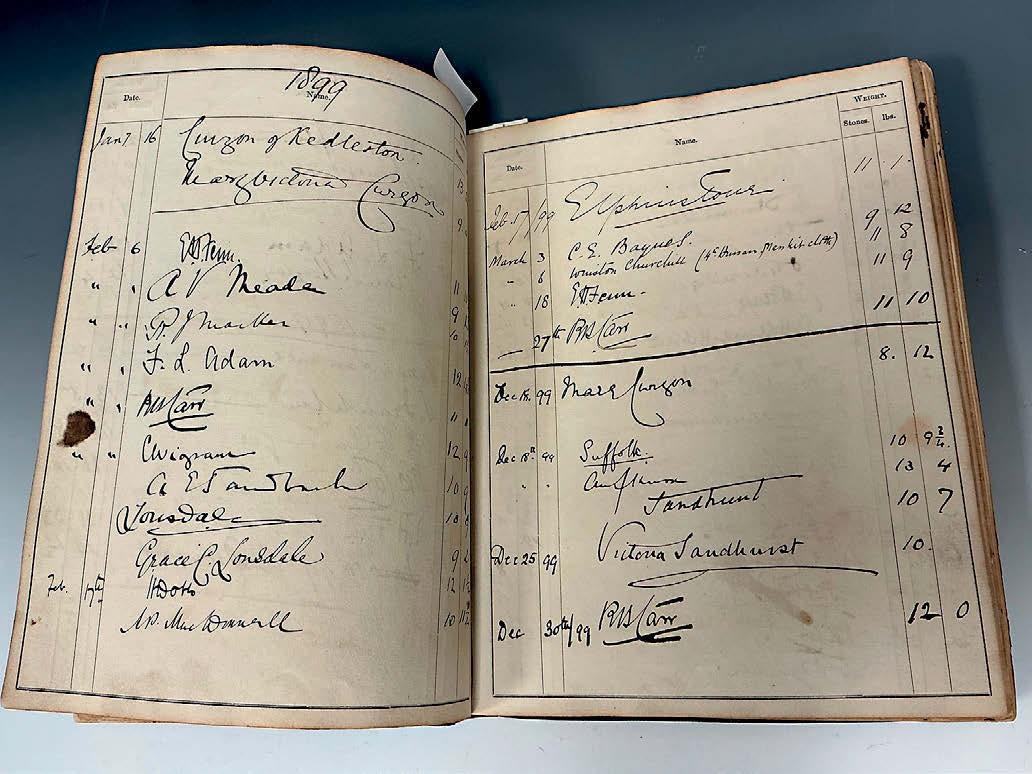 1899
Date. Name.
Jany 16 Curzon of Kedleston.
Mary Victoria Curzon
Feb 6 E.H. Fenn.
" " A V Meade 11
" " R. J Marker 9
" " F. L. Adam
" " RB Carr 12
" " C Wigram 12 9
A E Sandbach 10 9
Lonsdale
Grace C. Lonsdale 9 2
Feb. 17th 12
MacDonnell 10
WEIGHT.
Date. Name. Stones. lbs.
Feb 17/99 Elphinstone 11 1
March 3 C. E. Baynes. 9 12
" 6 Winston Churchill (4th Hussars Mess kit cloth) 11 8
18 E.H. Fenn. 11 9
27th RB Carr 11 10
Dec 18. 99 Mary Curzon 8. 12
Dec 18th 99 Suffolk. 10 9 3/4
" " 13 4
Sandhurst 10 7
Dec 25 99 Victoria Sandhurst 10.
Dec 30th/99 RB Carr 12 0